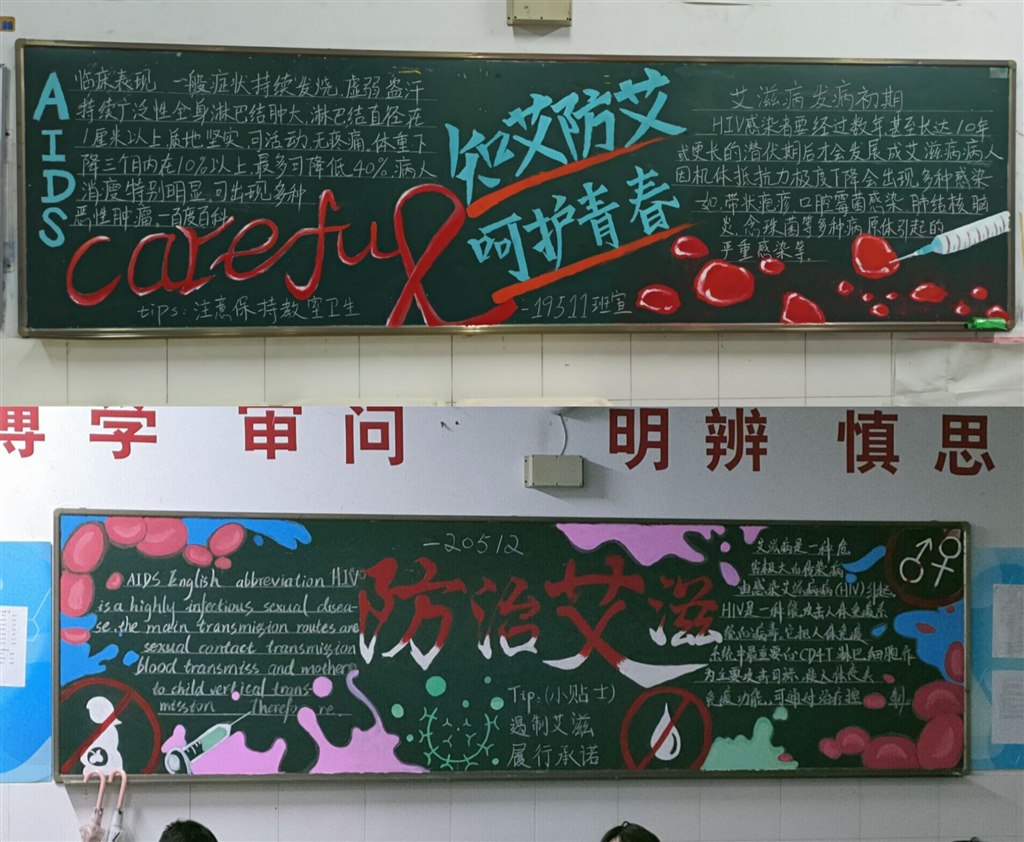 AIDS
临床表现 一般症状持续发烧、虚弱盗汗
持续广泛性全身淋巴结肿大、淋巴结直径在
1厘米以上,质地坚实,可活动,无疼痛,体重下
降三个月内在10%以上,最多可降低40%,病人
消瘦特别明显。可出现多种
恶性肿瘤。—百度百科
careful
tips:注意保持教室卫生
知艾防艾
呵护青春
-19511班宣
艾滋病发病初期
HIV感染者要经过数年、甚至长达10年
或更长的潜伏期后才会发展成艾滋病病人
因机体抵抗力极度下降会出现多种感染
如带状疱疹、口腔霉菌感染、肺结核、肠
炎、念珠菌等多种病原体引起的
严重感染等
博学 审问 明辨 慎思
-20512
AIDS English abbreviation HIV
is a highly infectious sexual disea-
se. the main transmission routes are
sexual contact transmission
blood transmiss and mother
to child vertical trans-
mission. Therefore
防治艾滋
Tip:(小贴士)
遏制艾滋
履行承诺
艾滋病是一种危
害极大的传染病
由感染艾滋病病(HIV)引起,
HIV是一种能攻击人体免疫系
统的病毒,它把人体免疫
系统中最重要的CD4T淋巴细胞作
为主要攻击目标,使人体丧失
免疫功能,可通过治疗控制